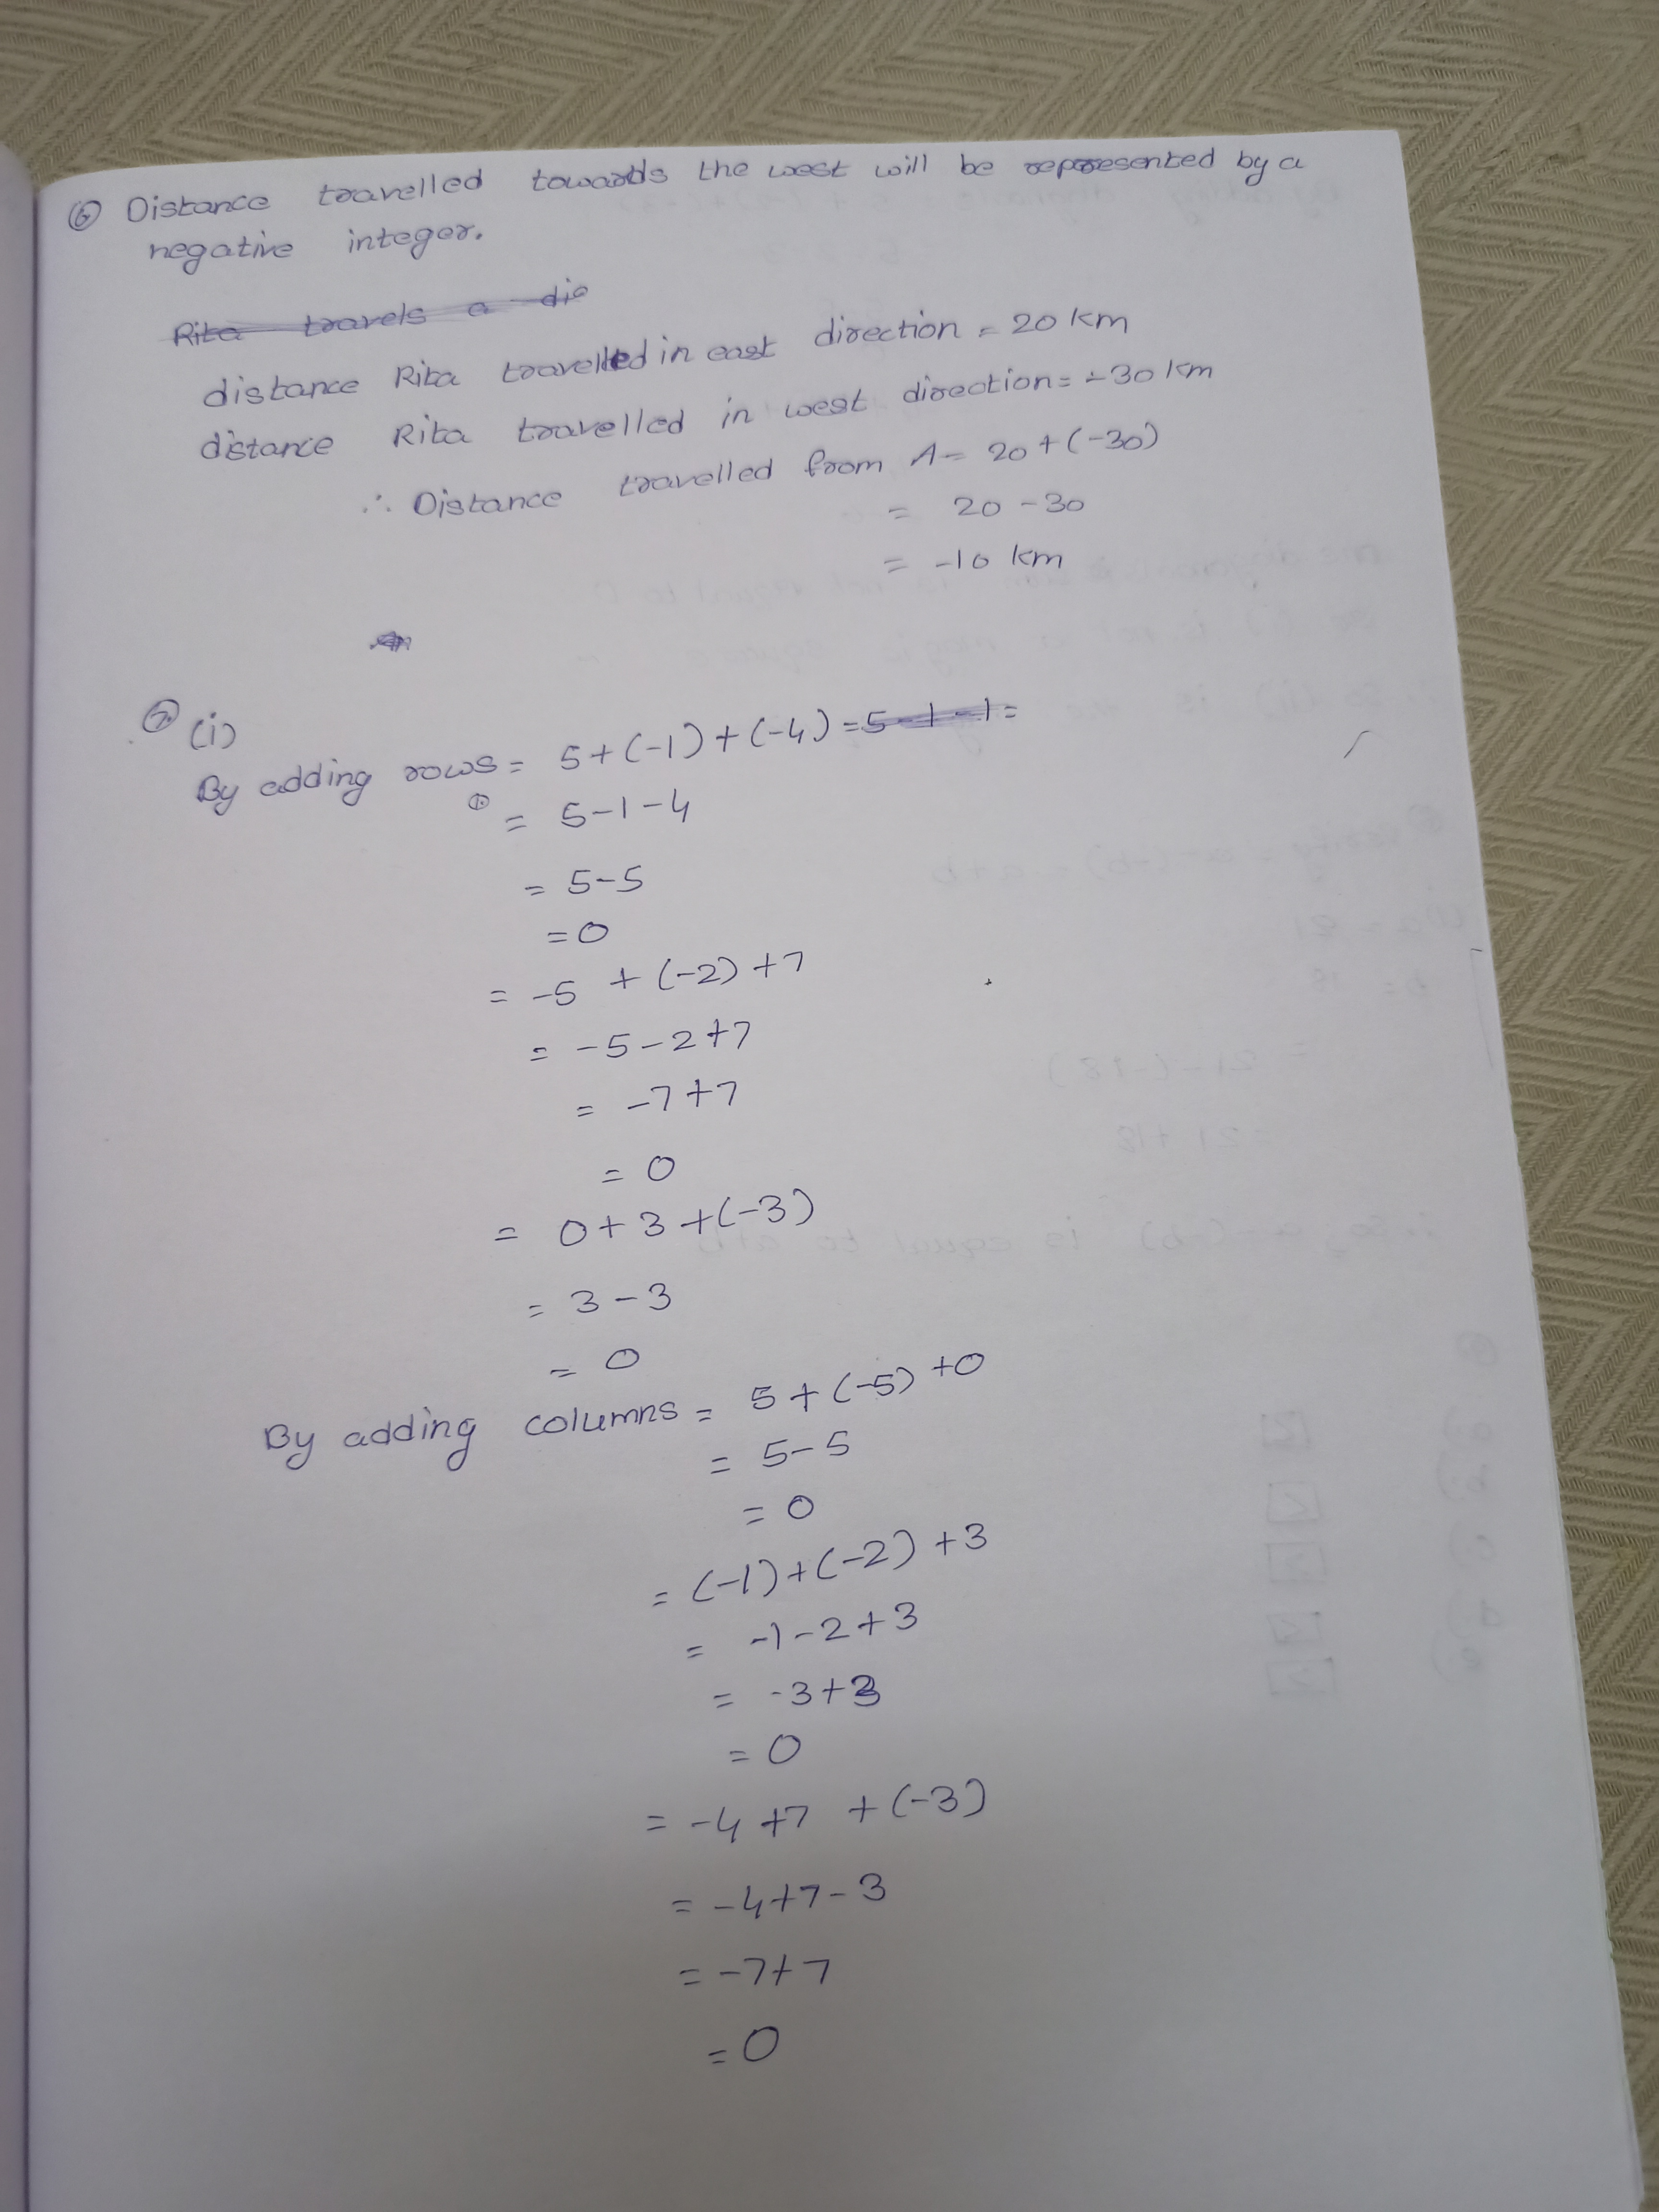 ⑥ Distance travelled towards the west will be represented by a
negative integer.
Rita travels a dis
distance Rita travelled in east direction = 20 km
distance Rita travelled in west direction = -30 km
∴ Distance travelled from A = 20 + (-30)
= 20 - 30
= -10 km
⑦ (i)
By adding rows = 5 + (-1) + (-4) = 5-1-1 =
① = 5-1-4
= 5-5
= 0
= -5 + (-2) + 7
= -5-2+7
= -7+7
= 0
= 0+3+(-3)
= 3-3
= 0
By adding columns = 5 + (-5) + 0
= 5-5
= 0
= (-1)+(-2)+3
= -1-2+3
= -3+3
= 0
= -4+7 + (-3)
= -4+7-3
= -7+7
= 0